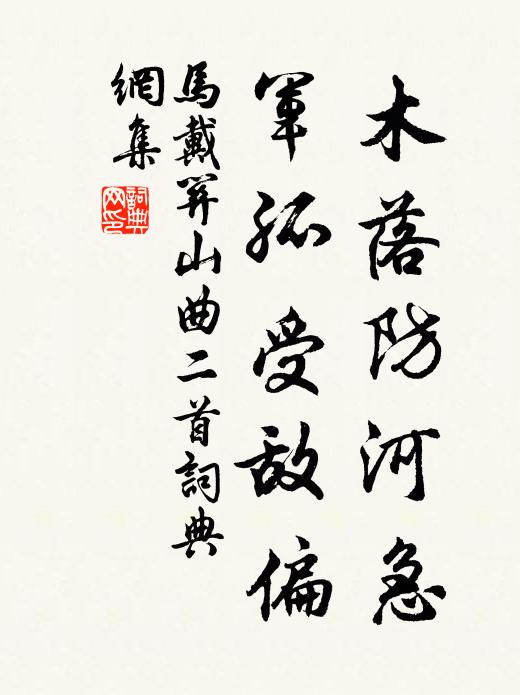 木落防河急
軍孤受敌偏
馬戴關山曲二首詞典
網集
詞典
网印